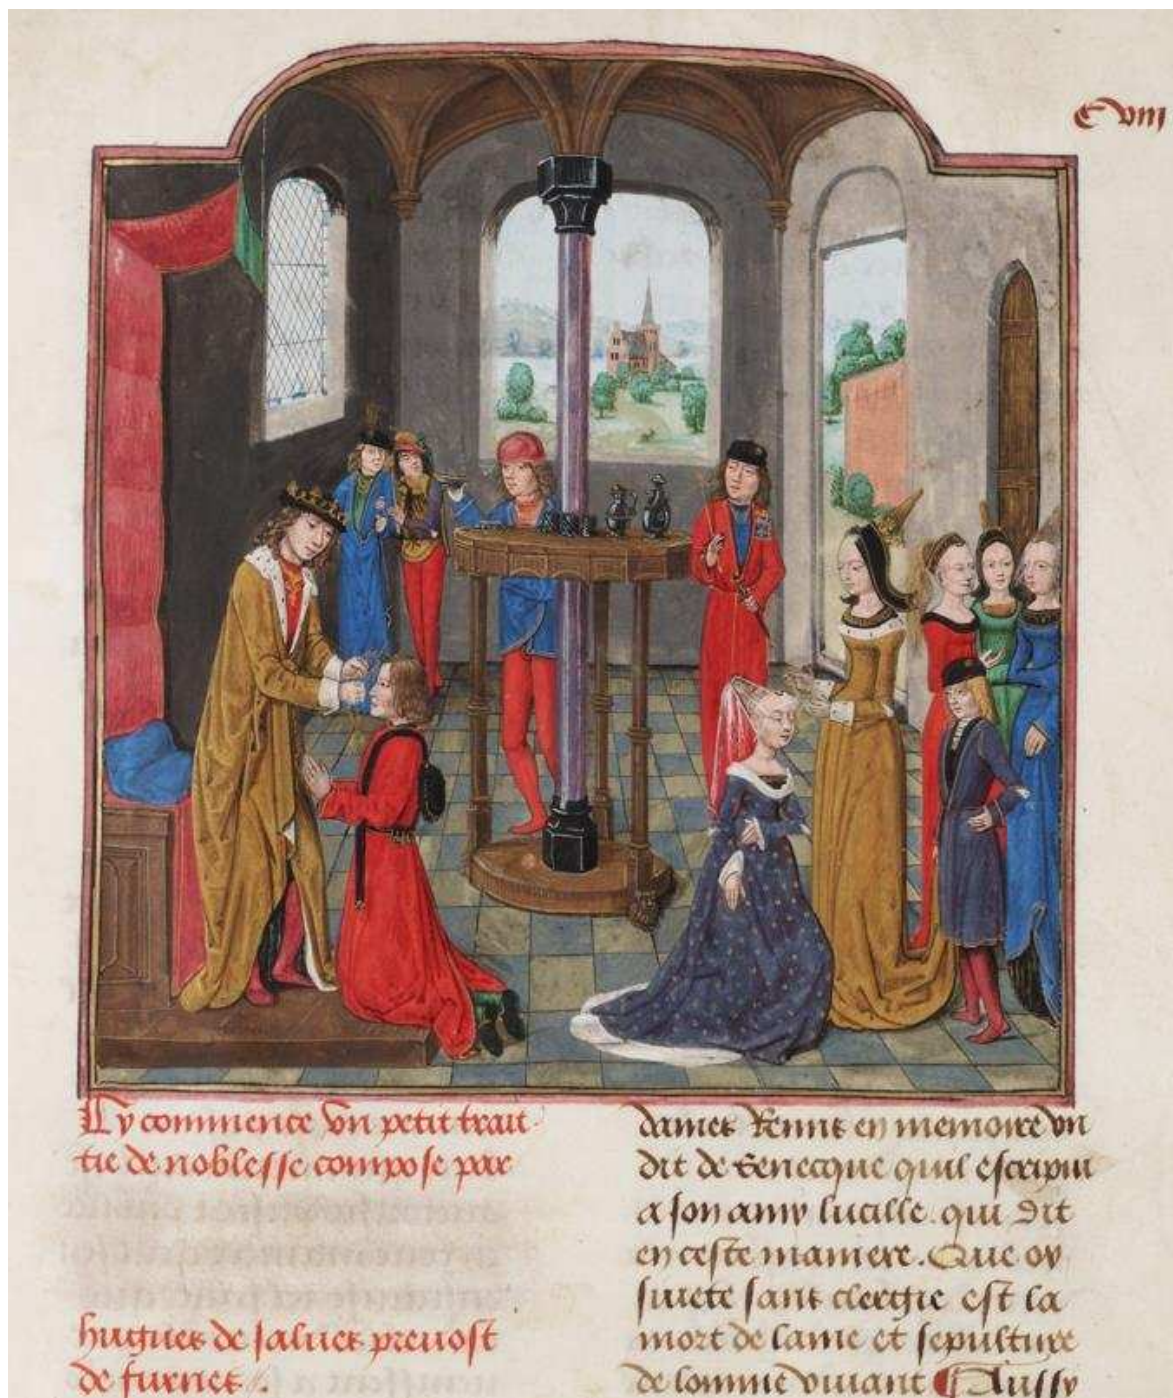 C viii
Cy commence vn petit trait
tie de noblesse compose par
hugues de salues preuost
de furnes .
dames Remis en memoire vn
dit de Senecque quil escripui
a son amy lucille. qui dit
en ceste maniere. Que oy
siuete sans clergie est la
mort de lame et sepulture
de lomme viuant ¶ Aussy